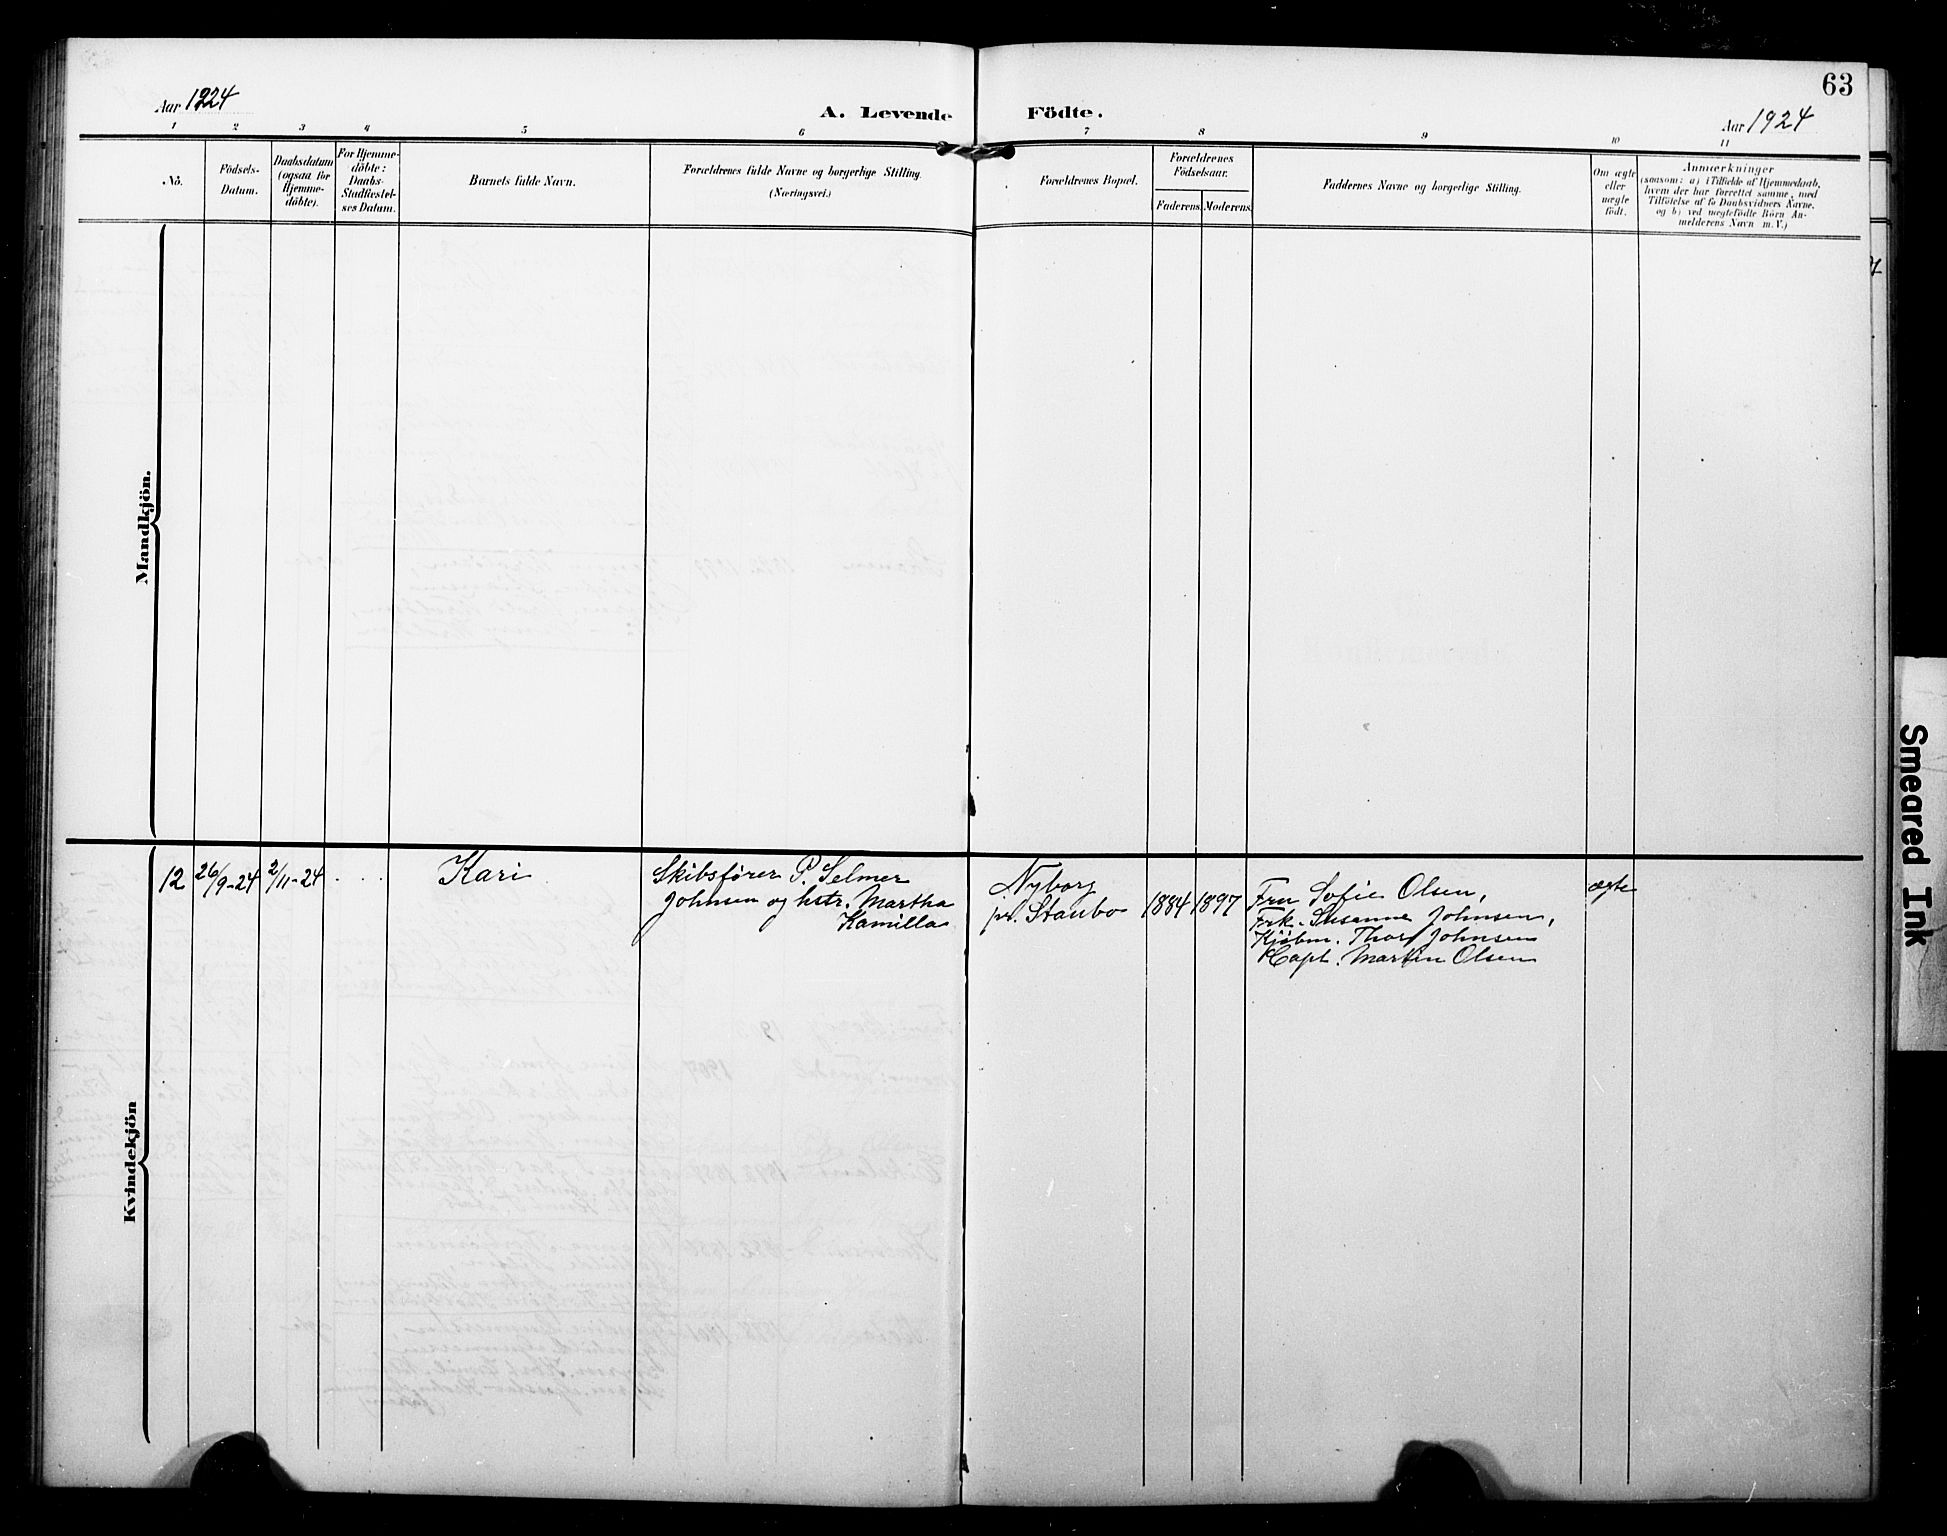 63
Aar 1924
A. Levende Födte.
Aar 1924
1 2 3 4 5 6 7 8 9 10 11
No.
Födsels-
Datum.
Daabsdatum
(ogsaa for
Hjemme-
döbte).
For Hjemme-
döbte:
Daabs-
Stadfæstel-
ses Datum.
Barnets fulde Navn.
Forældrenes fulde Navne og borgerlige Stilling.
(Næringsvei.)
Forældrenes Bopæl.
Forældrenes
Födselsaar.
Faderens. Moderens.
Faddernes Navne og borgerlige Stilling.
Om ægte
eller
uægte
födt.
Anmærkninger
(saasom: a) i Tilfælde af Hjemmedaab,
hvem der har forrettet samme, med
Tilföielse af to Daabsvidners Navne,
og b) ved uægtefödte Börn An-
melderens Navn m. V.)
Mandkjön.
Kvindekjön
12 26/9-24 2/11-24 . . . Kari
Skibsfører P. Selmer
Johnsen og hstr. Martha
Kamilla
Nyborg
pr. Staubo
1884 1897
Fru Sofie Olsen,
Frk. Susanne Johnsen,
Kjøbm. Thor Johnsen
Kapt. Martin Olsen
ægte
Smeared Ink